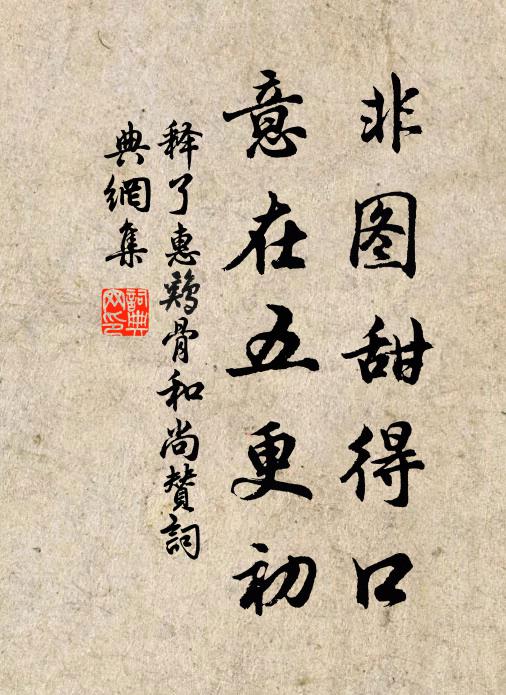 非图甜得口
意在五更初
释了惠鸡骨和尚赞词
典網集
詞典
网印